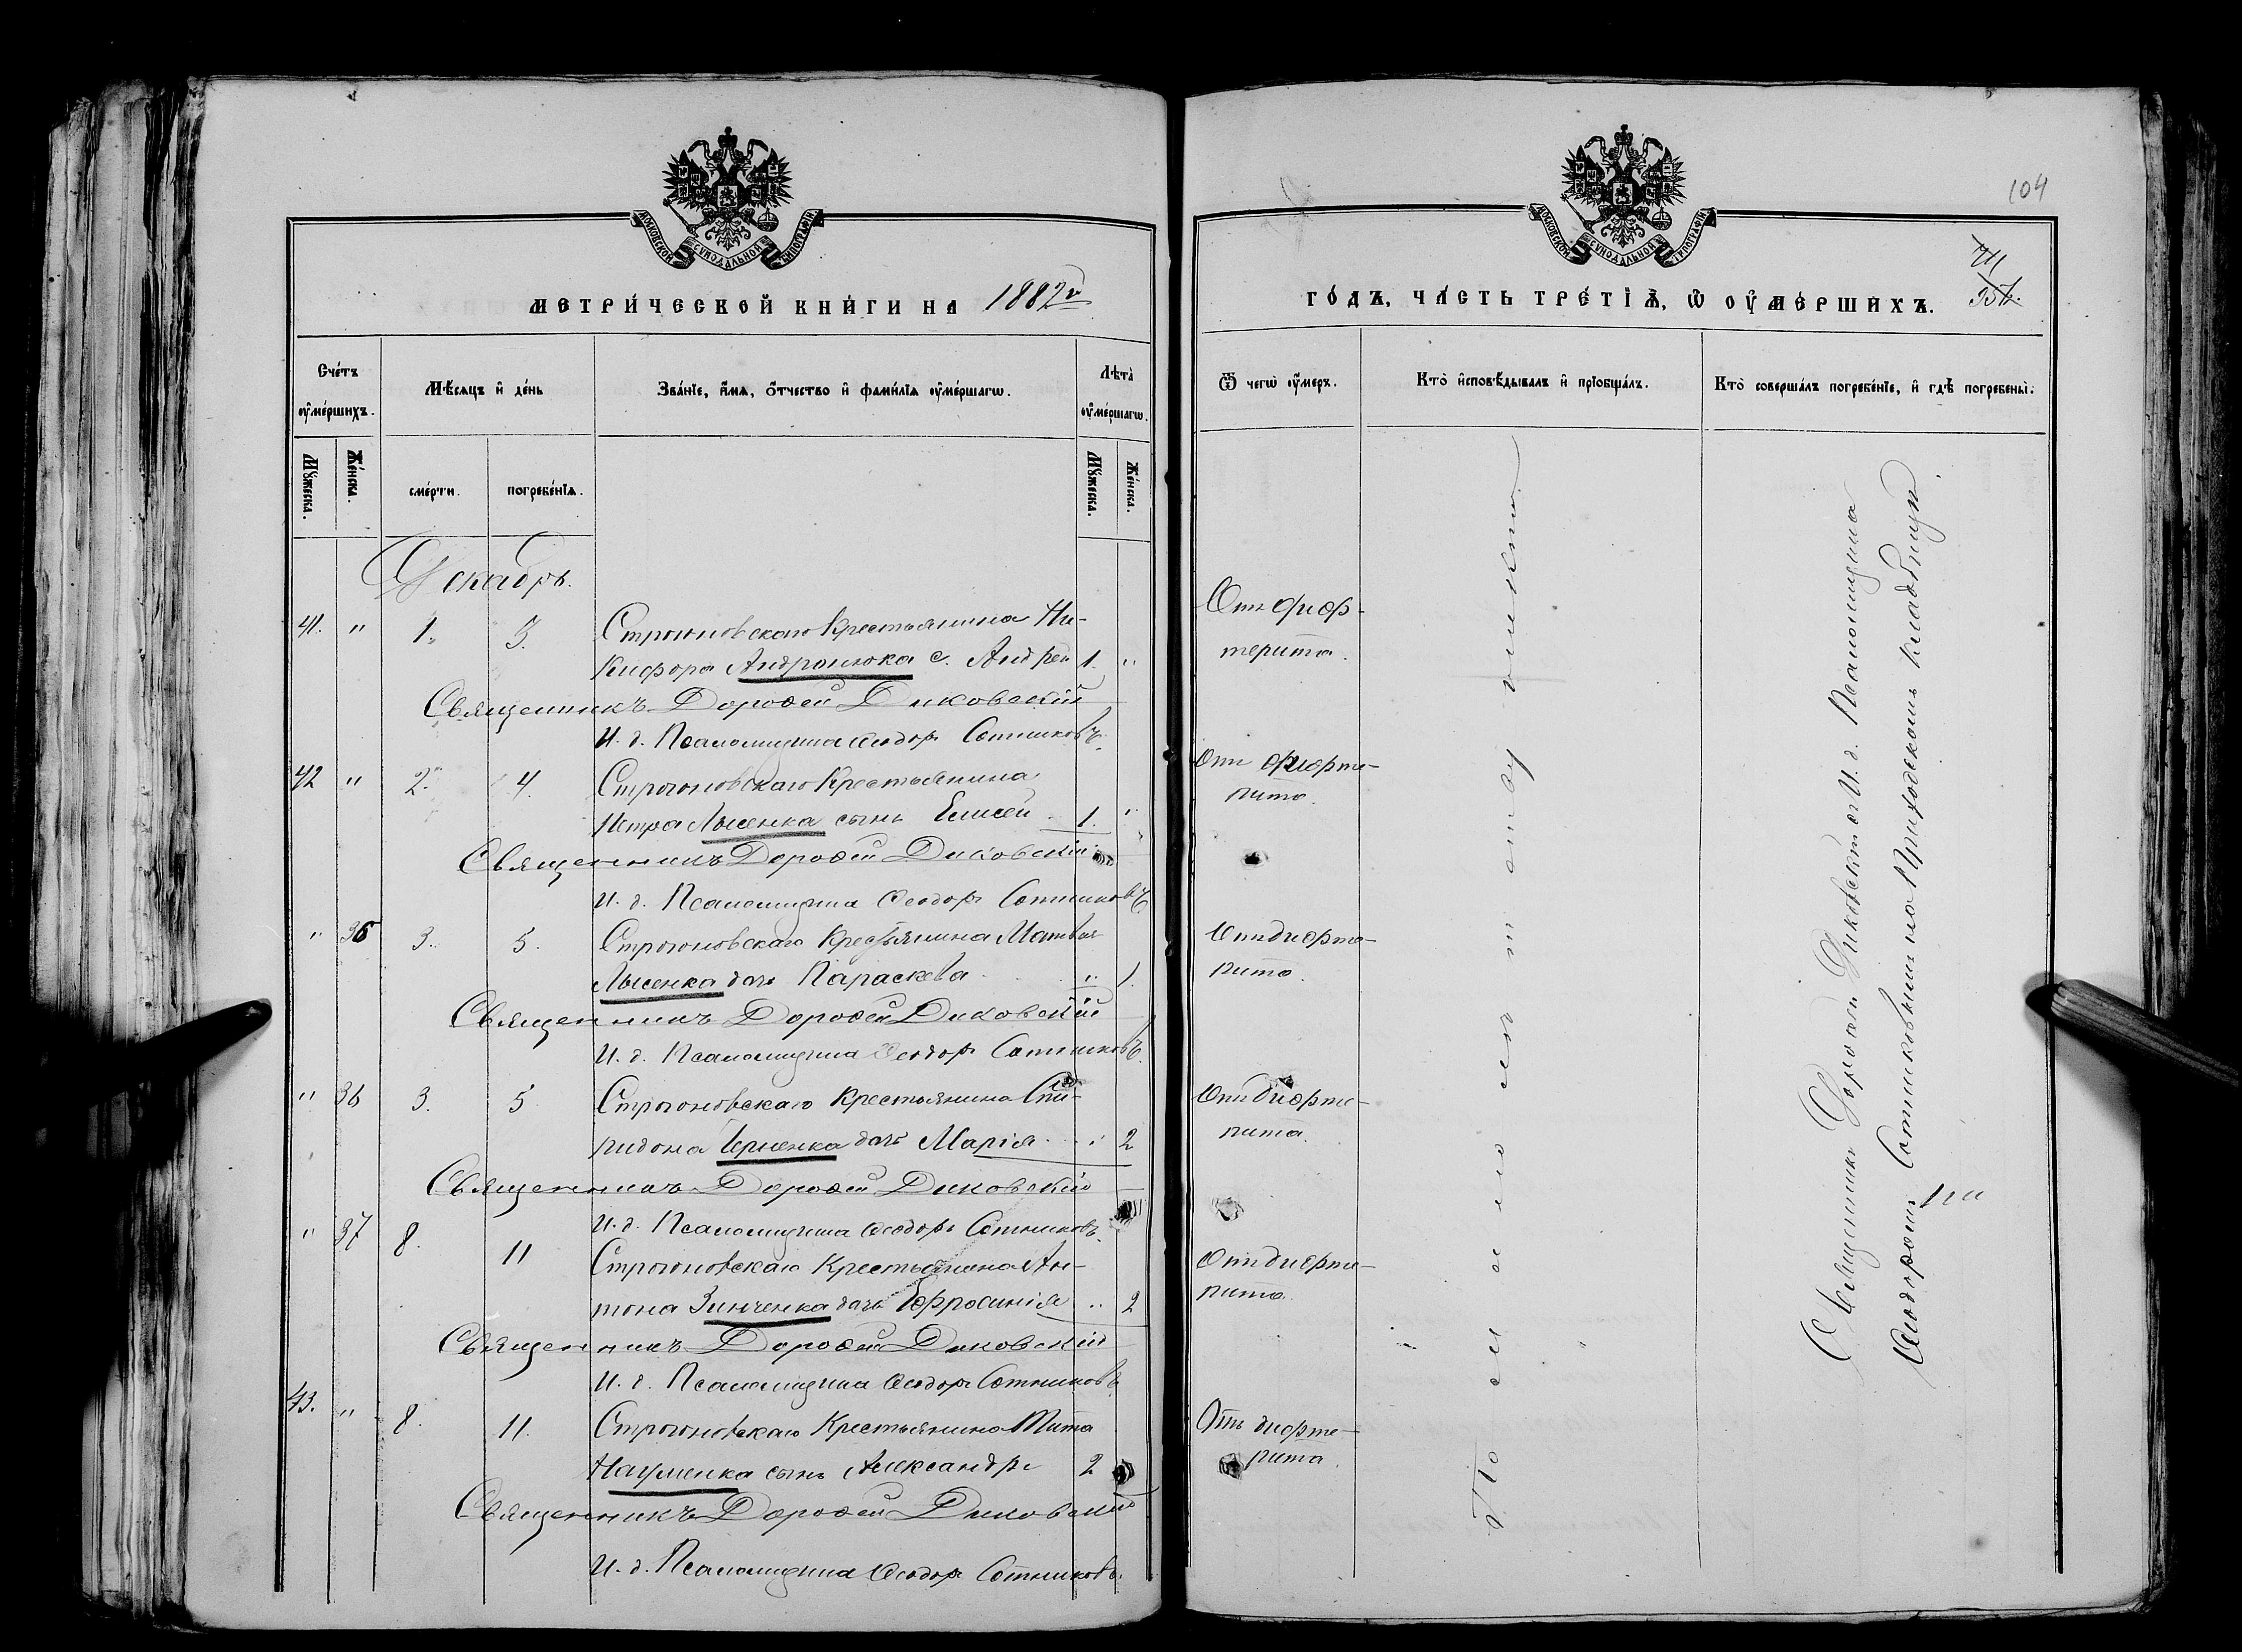 МОСКОВСКОЙ СѴНОДАЛЬНОЙ ТІПОГРАФІИ
МЕТРИ́ЧЕСКОЙ КНИ́ГИ НА 1882й
Сче́тъ ᲂу҆ме́ршихъ.
Мѣ́сяцъ и҆ де́нь
Зва́нїе, и҆́мѧ, ѻ҆́тчество и҆ фами́лїѧ ᲂу҆ме́ршагѡ.
Лѣта̀ ᲂу҆ме́ршагѡ.
Мꙋ́жеска.
Же́нска.
сме́рти.
погребе́нїѧ.
Мꙋ́жеска.
Же́нска.
Декабрь.
41. " 1. 3. Строгоновскаго Крестьянина Ни-
кифора Андронюка с. Андрей 1. "
Священникъ Дорофей Диковскій
И. д. Псаломщика Ѳеодоръ Сотниковъ.
42 " 2. 4. Строгоновскаго Крестьянина
Петра Лысенка сынъ Елисей 1. "
Священникъ Дорофей Диковскій
И. д. Псаломщика Ѳеодоръ Сотниковъ.
" 35 3. 5. Строгоновскаго Крестьянина Матвея
Лысенка дочь Параскева " 1.
Священникъ Дорофей Диковскій
И. д. Псаломщика Ѳеодоръ Сотниковъ.
" 36 3. 5 Строгоновскаго Крестьянина Спи-
ридона Черненка дочь Марія " 2
Священникъ Дорофей Диковскій
И. д. Псаломщика Ѳеодоръ Сотниковъ.
" 37 8. 11 Строгоновскаго Крестьянина Ан-
тона Зинченка дочь Ефросинія " 2
Священникъ Дорофей Диковскій
И. д. Псаломщика Ѳеодоръ Сотниковъ
43. " 8. 11. Строгоновскаго Крестьянина Тита
Науменка сынъ Александръ 2
Священникъ Дорофей Диковскій
И. д. Псаломщика Ѳеодоръ Сотниковъ.
104
МОСКОВСКОЙ СѴНОДАЛЬНОЙ ТІПОГРАФІИ
ГО́ДЪ, ЧА́СТЬ ТРЕ́ТЇѦ, Ѡ҆ ОУ҆МЕ́РШИХЪ.
Ѿ чегѡ̀ ᲂу҆́меръ.
Кто̀ и҆сповѣ́дывалъ и҆ прїобща́лъ.
Кто̀ соверша́лъ погребе́нїе, и҆ гдѣ̀ погребены̀.
Отъ диф-
терита.
Отъ дифте-
рита.
Отъ дифте-
рита.
Отъ дифте-
рита.
Отъ дифте-
рита.
Отъ дифте-
рита.
По малолетству никто.
Священникъ Дорофей Диковскій съ И. д. Псаломщика
Ѳеодоромъ Сотниковымъ на Приходскомъ кладбищѣ.